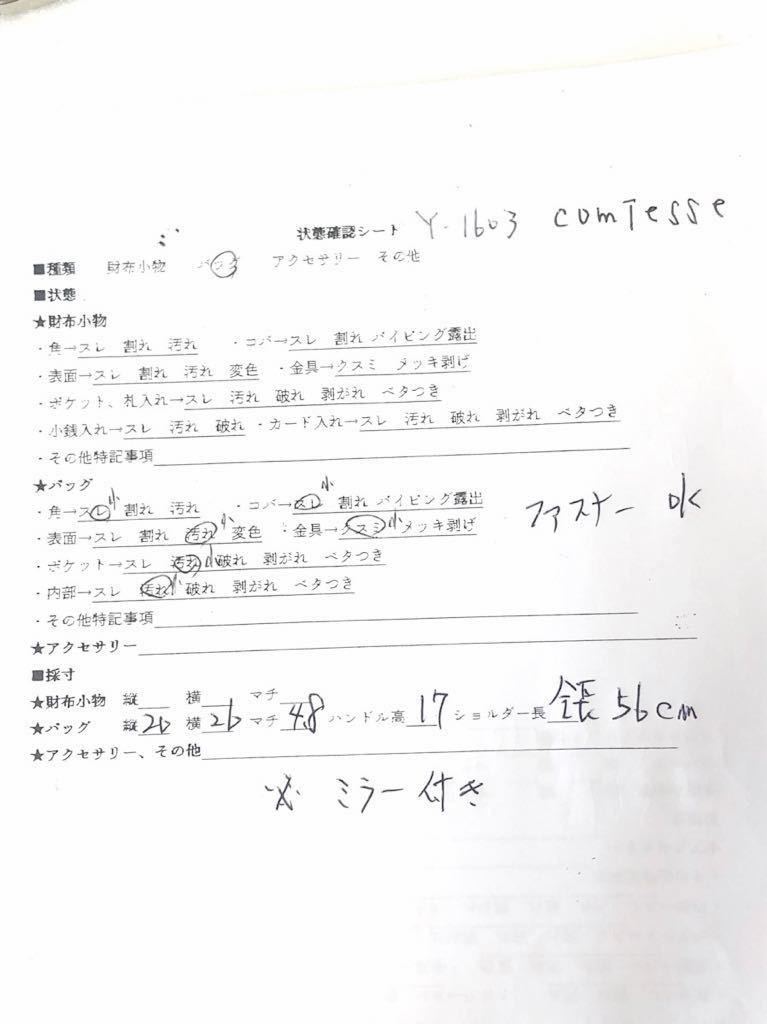 状態確認シート Y-1603 comTesse
■種類 財布小物 バッグ アクセサリー その他
■状態
★財布小物
・角→スレ 割れ 汚れ ・コバ→スレ 割れ パイピング露出
・表面→スレ 割れ 汚れ 変色 ・金具→クスミ メッキ剥げ
・ポケット、札入れ→スレ 汚れ 破れ 剥がれ ベタつき
・小銭入れ→スレ 汚れ 破れ ・カード入れ→スレ 汚れ 破れ 剥がれ ベタつき
・その他特記事項
★バッグ
・角→スレ小 割れ 汚れ ・コバ→スレ小 割れ パイピング露出
・表面→スレ 割れ 汚れ小 変色 ・金具→クスミ小 メッキ剥げ
ファスナー OK
・ポケット→スレ 汚れ小 破れ 剥がれ ベタつき
・内部→スレ 汚れ小 破れ 剥がれ ベタつき
・その他特記事項
★アクセサリー
■採寸
★財布小物 縦 横 マチ
★バッグ 縦26 横26 マチ4.8 ハンドル高17 ショルダー長 全長56cm
★アクセサリー、その他
※ ミラー付き